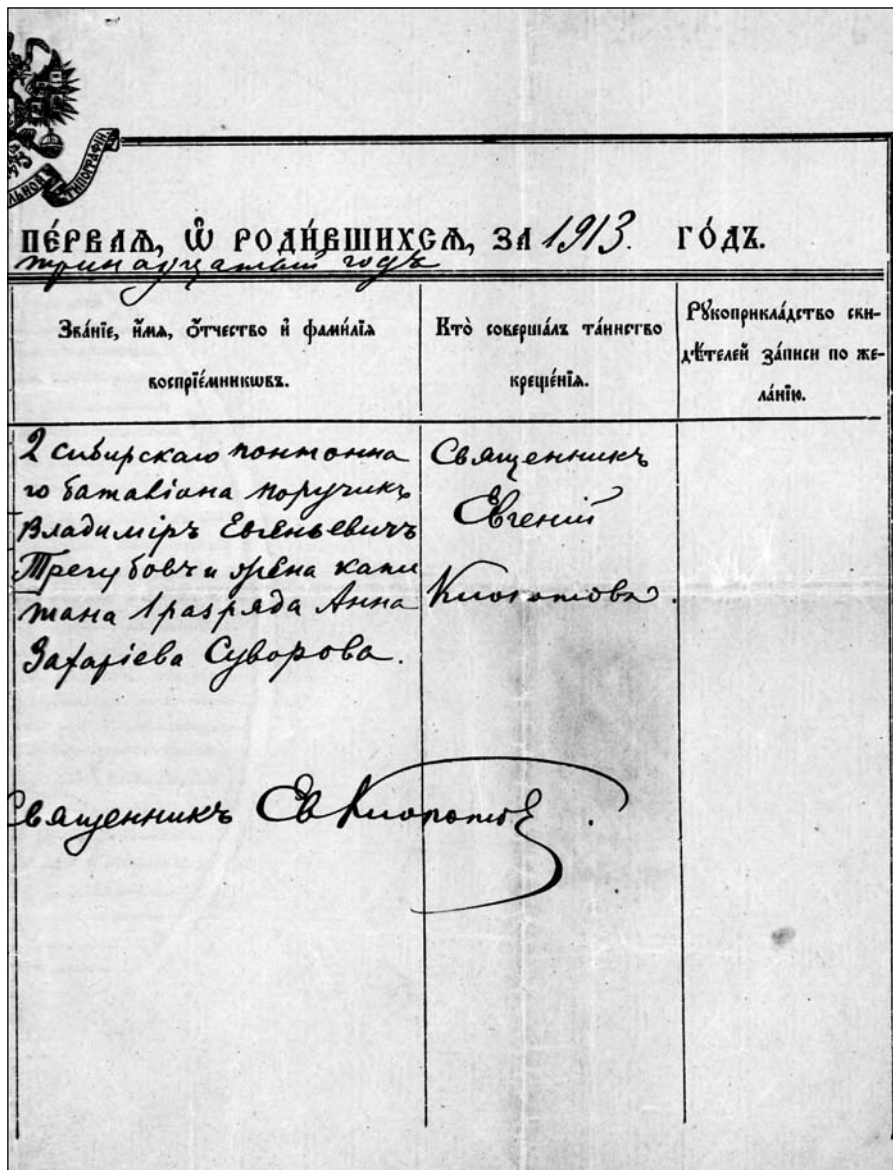 ЛЬНОЙ ТИПОГРАФІИ.
ПЕ́РВАѦ, Ѡ҆ РОДИ́ВШИХСѦ, ЗА 1913. ГО́ДЪ.
тринадцатый годъ
Зва́нїе, и҆́мѧ, ѻ҆́тчество и҆ фами́лїѧ
воспрїе́мникѡвъ.
Кто̀ соверша́лъ та́инство
креще́нїѧ.
Рꙋкоприкла́дство сви-
дѣ́телей за́писи по же-
ла́нїю.
2 сибирскаго понтонна
го баталіона поручикъ
Владиміръ Евгеньевичъ
Трегубовъ и жена капи
тана 1 разряда Анна
Захаріева Суворова.
Священникъ
Евгеній
Священникъ Ев